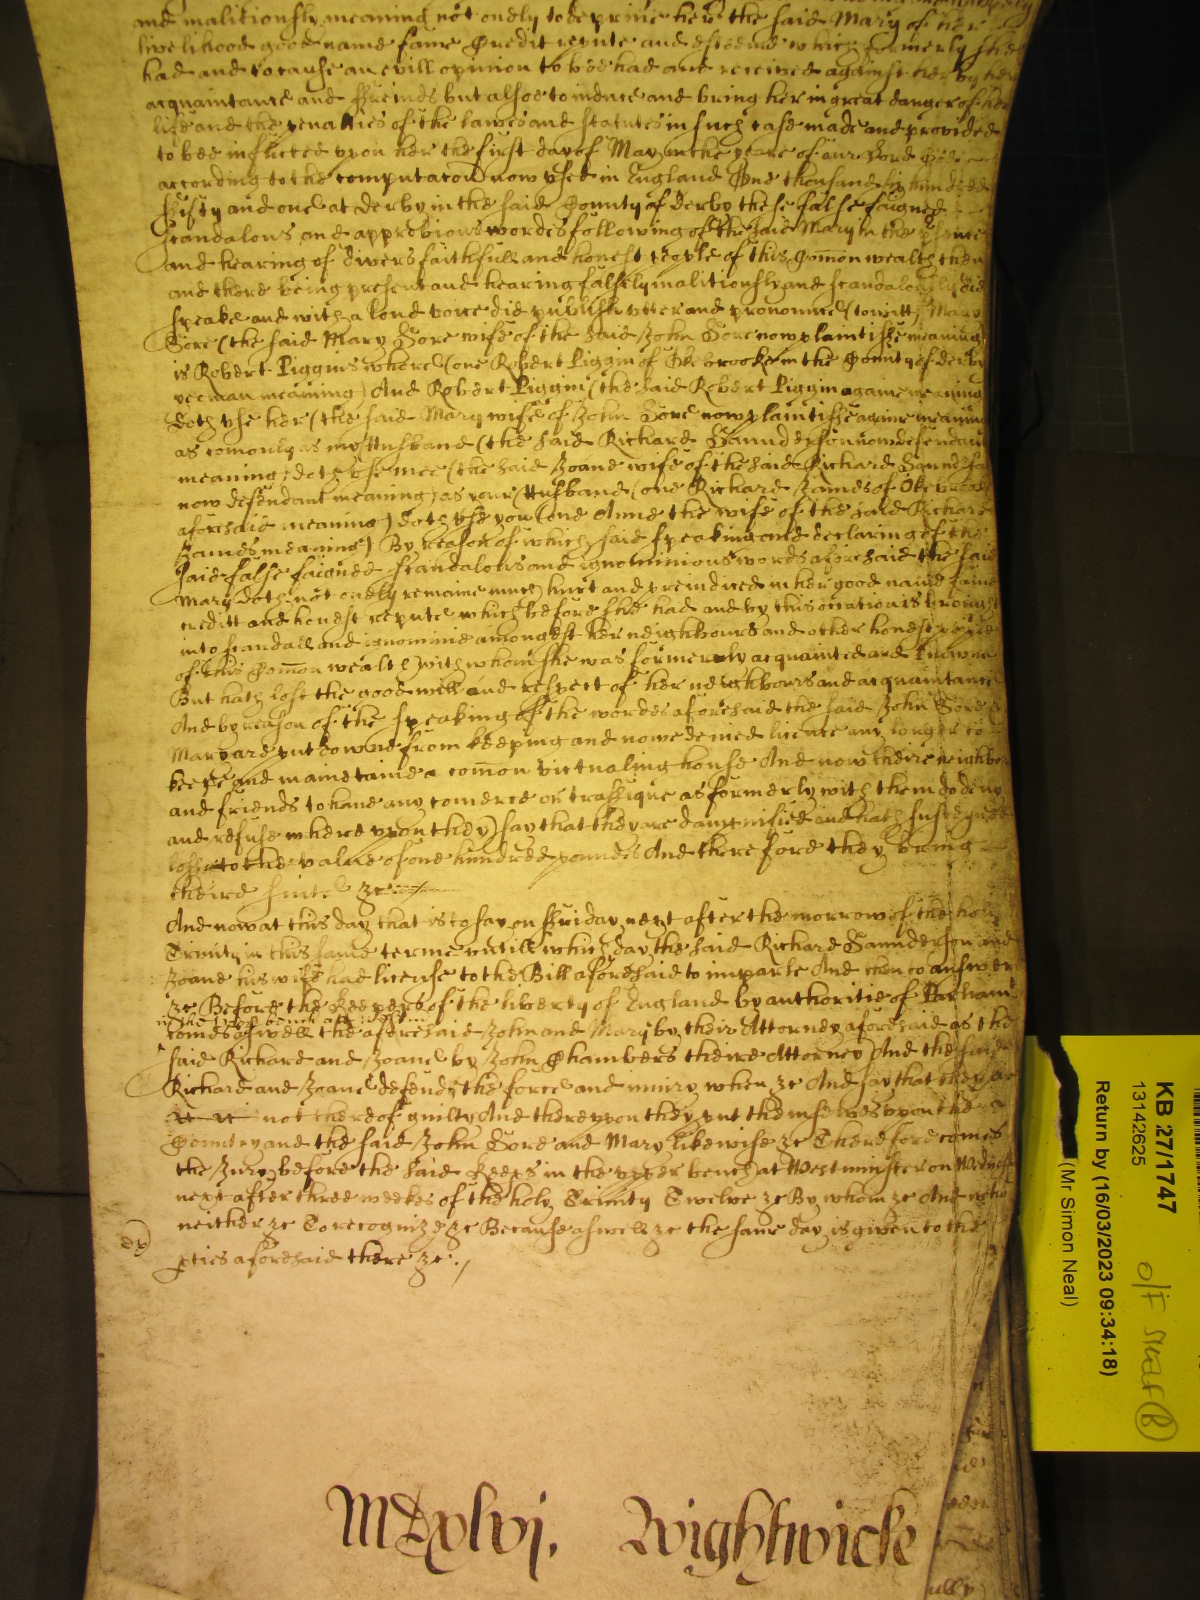 and malitiously meaning not onely to deprive her the said Mary of her
livelihood good name fame Creditt repute and esteeme which formerly shee
had and to cause an evill opinion to bee had and received against her by her
acquaintance and ffreinds but alsoe to induce and bring her in great danger of her
life and the penalties of the lawes and statutes in such case made and provided
to bee inflicted upon her the first day of May in the yeare of our Lord God
according to the computacon now used in England One thousand six hundred
ffifty and one at derby in the said County of derby these false faigned
scandalous and approbrious wordes following of the said Mary in the
and hearing of divers faithfull and honest people of this Comon wealth then
and there being present and hearing falsely malitiously and scandalously did
speake and with a loud voice did publish utter and pronounce (towitt) Mary
Sore (the said Mary Sore wife of the said John Sore now plaintiffe meaning)
is Robert Piggins whore (one Robert Piggin of Okebrooke in the County of derby
yeoman meaning) And Robert Piggin (the said Robert Piggin againe meaning
doth use her (the said Mary wife of John Sore now plaintiffe againe meaning
as comonly as my Husband (the said Richard Saunderson now defendant
meaning) doth use mee (the said Joane wife of the said Richard Saunderson
now defendant meaning) as your Husband (one Richard James of Okebrooke
aforesaid meaning) doth use you (one Anne the wife of the said Richard
James meaning) By reason of which said speaking and declaring of the
said false faigned scandalous and ignominious wordes aforesaid the said
Mary doth not onely remaine much hurt and preiudiced in her good name fame
creditt and honest repute which before she had and by this occation is brought
into scandall and ignominie amongest her neighbours and other honest people
of this Comon wealth with whom she was formerly acquainted and knowne
But hath lost the good will and respect of her neighbours and acquaintance
And by reason of the speaking of the wordes aforesaid the said John Sore &
Mary are put downe from keeping and nowe denied licence any longer to
keepe and maintaine a comon victualing house And now theire neighbo
and friends to have any comerce or traffique as formerly with them do deny
and refuse whereupon they say that they are damnified and hath susteyned
losse to the value of one hundred pounds And therefore they bring
theire suite &c
And now at this day that is to say on ffriday next after the morrow of the holy
Trinity in this same terme untill which day the said Richard Saunderson and
Joane his wife had license to the Bill aforesaid to imparle And then to answer
&c Before the Keepers of the liberty of England by authoritie of Parliam
in the upper bench att
comes aswell the aforesaid John and Mary by their Attorney aforesaid as the
said Richard and Joane by John Chambers theire Attorney And the said
Richard and Joane defend the force and iniury when &c And say that they ar
not thereof guilty And thereupon they put themselves upon the
Countrey and the said John Sore and Mary likewise &c Therefore comes
the Jury before the said Keeps in the upper bench at Westminster on Wednesd
next after three weekes of the holy Trinity Twelve &c By whom &c And who
neither &c To recognize &c Because aswell &c the same day is given to the
pties aforesaid there &c
MDxlvj. Wightwicke
KB 27/1747
13142625
Return by (16/03/2023 09:34:18)
(Mr Simon Neal)